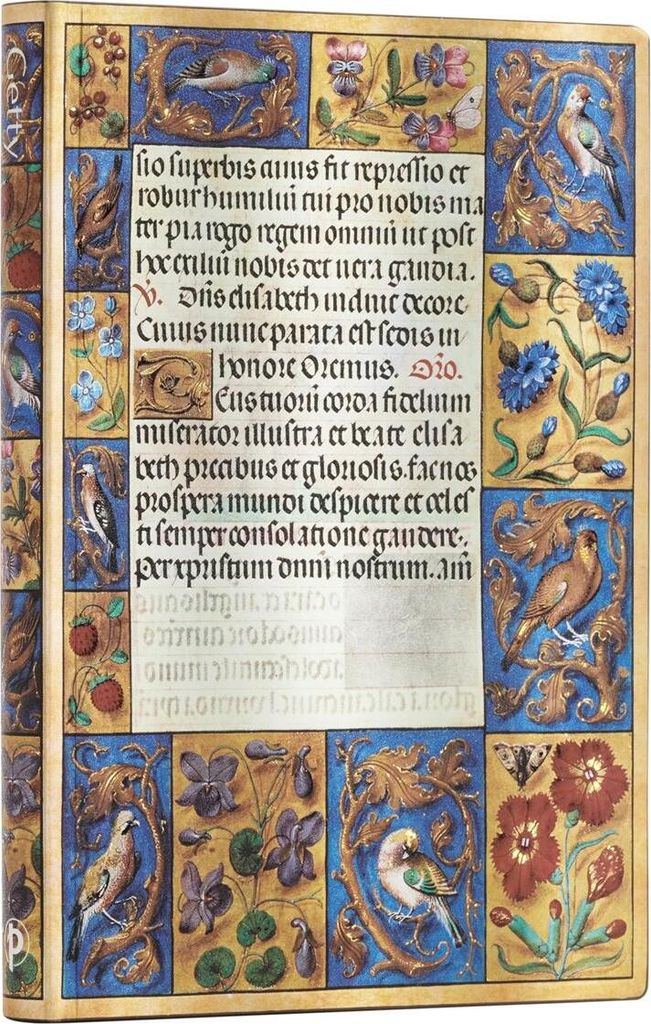 Getty
sio superbis cuius fit repressio et
robur humiliū tui pro nobis ma
ter pia rogo regem omniū ut post
hoc exiliū nobis det uera gaudia.
V. Dn̄s elisabeth induit decore
Cuius nunc parata est sedis in
honore Oremus. Or̄o.
Deus tuorū corda fidelium
miserator illustra et beate elisa
beth precibus et gloriosis. fac nos
prospera mundi despicere et celes
ti semper consolatione gaudere.
Per xp̄ristum dn̄m nostrum. am̄